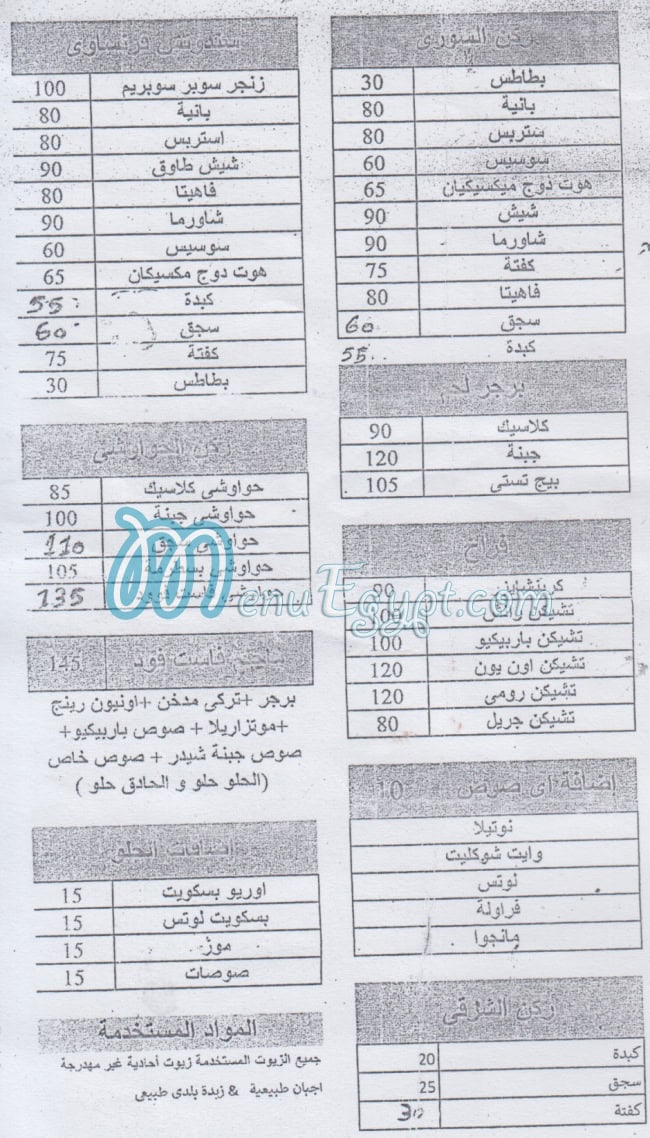 ركن السورى
بطاطس 30
بانية 80
ستربس 80
سوسيس 60
هوت دوج ميكسيكيان 65
شيش 90
شاورما 90
كفتة 75
فاهيتا 80
سجق 60
كبدة 55
برجر لحم
كلاسيك 90
جبنة 120
بيج تستى 105
فراخ
كرينشى 90
تشيكن رانش 100
تشيكن باربيكيو 100
تشيكن اون يون 120
تشيكن رومى 120
تشيكن جريل 80
إضافة اى صوص 10
نوتيلا
وايت شوكليت
لوتس
فراولة
مانجوا
ركن الشرقى
كبدة 20
سجق 25
كفتة 30
سندوتش فرنساوى
زنجر سوبر سوبريم 100
بانية 80
استربس 80
شيش طاوق 90
فاهيتا 80
شاورما 90
سوسيس 60
هوت دوج مكسيكان 65
كبدة 55
سجق 60
كفتة 75
بطاطس 30
ركن الحواوشى
حواوشى كلاسيك 85
حواوشى جبنة 100
حواوشى سجق 110
حواوشى بسطرمة 105
حواوشى فاست فوود 135
فاست فود 145
برجر +تركى مدخن +اونيون رينج
+موتزاريلا + صوص باربيكيو+
صوص جبنة شيدر + صوص خاص
(الحلو حلو و الحادق حلو )
اضافات الحلو
اوريو بسكويت 15
بسكويت لوتس 15
موز 15
صوصات 15
المواد المستخدمة
جميع الزيوت المستخدمة زيوت أحادية غير مهدرجة
اجبان طبيعية & زبدة بلدى طبيعى
MenuEgypt.com